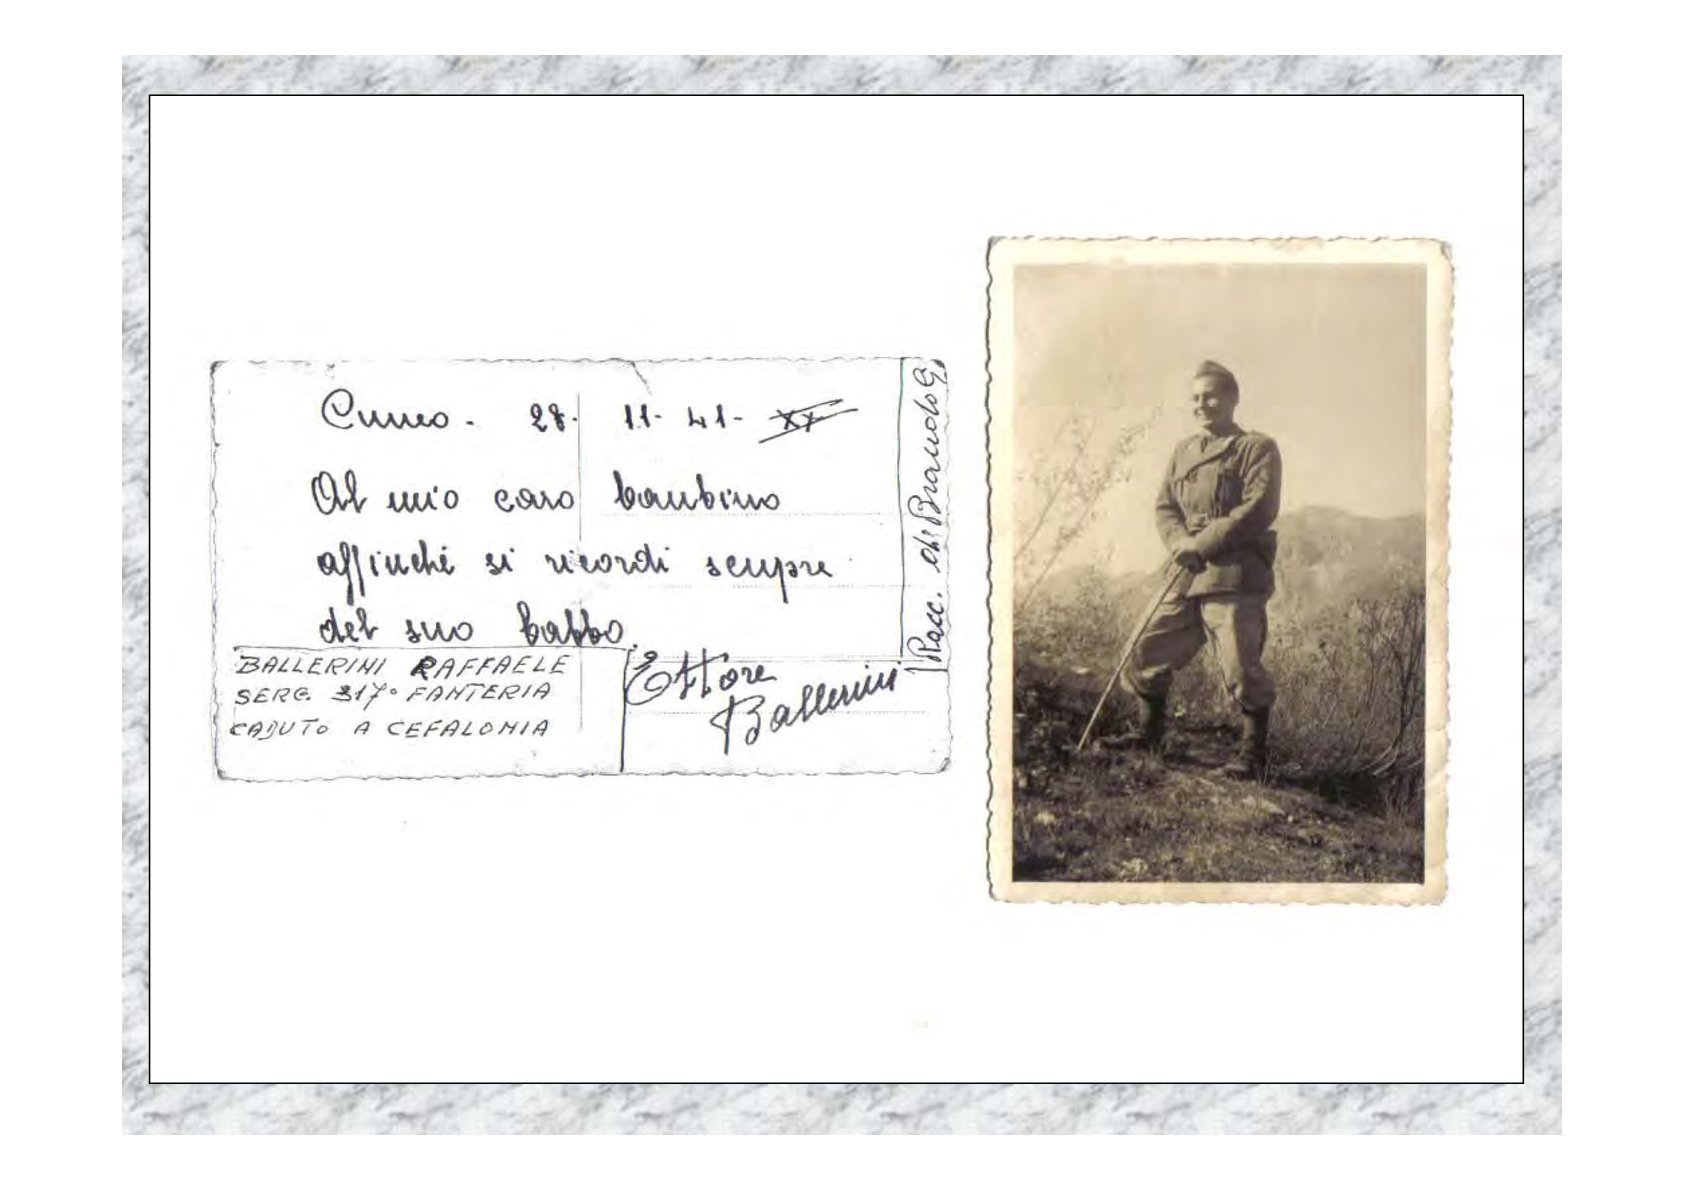 Cuneo. 28. 11- 41- XX
Al mio caro bambino
affinché si ricordi sempre
del suo babbo.
Ettore
Ballerini
BALLERINI RAFFAELE
SERG. 317° FANTERIA
CADUTO A CEFALONIA
Racc. di Brandolo G